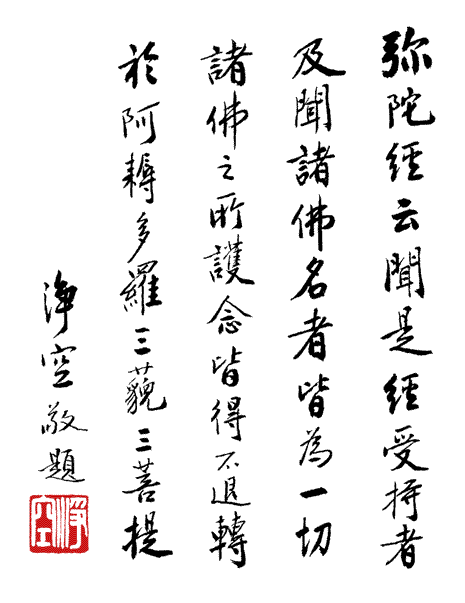 弥陀經云聞是經受持者
及聞諸佛名者皆為一切
諸佛之所護念皆得不退轉
於阿耨多羅三藐三菩提
淨空敬題
淨空